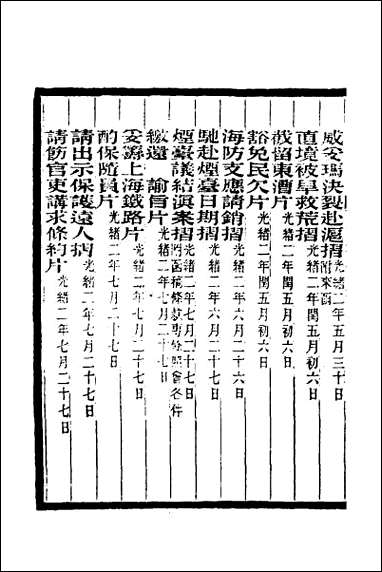 威妥瑪決裂赴滬摺光緒二年五月三十日附來函
直境被旱救荒摺光緒二年閏五月初六日
截留東漕片光緒二年閏五月初六日
豁免民欠片光緒二年閏五月初六日
海防支應請銷摺光緒二年六月二十六日
馳赴煙臺日期摺光緒二年六月二十七日
煙臺議結滇案摺光緒二年七月二十七日附函稿條款專分照會各件
繳還 諭旨片光緒二年七月二十七日
妥籌上海鐵路片光緒二年七月二十七日
酌保隨員片光緒二年七月二十七日
請出示保護遠人摺光緒二年七月二十七日
請飭官吏講求條約片光緒二年七月二十七日